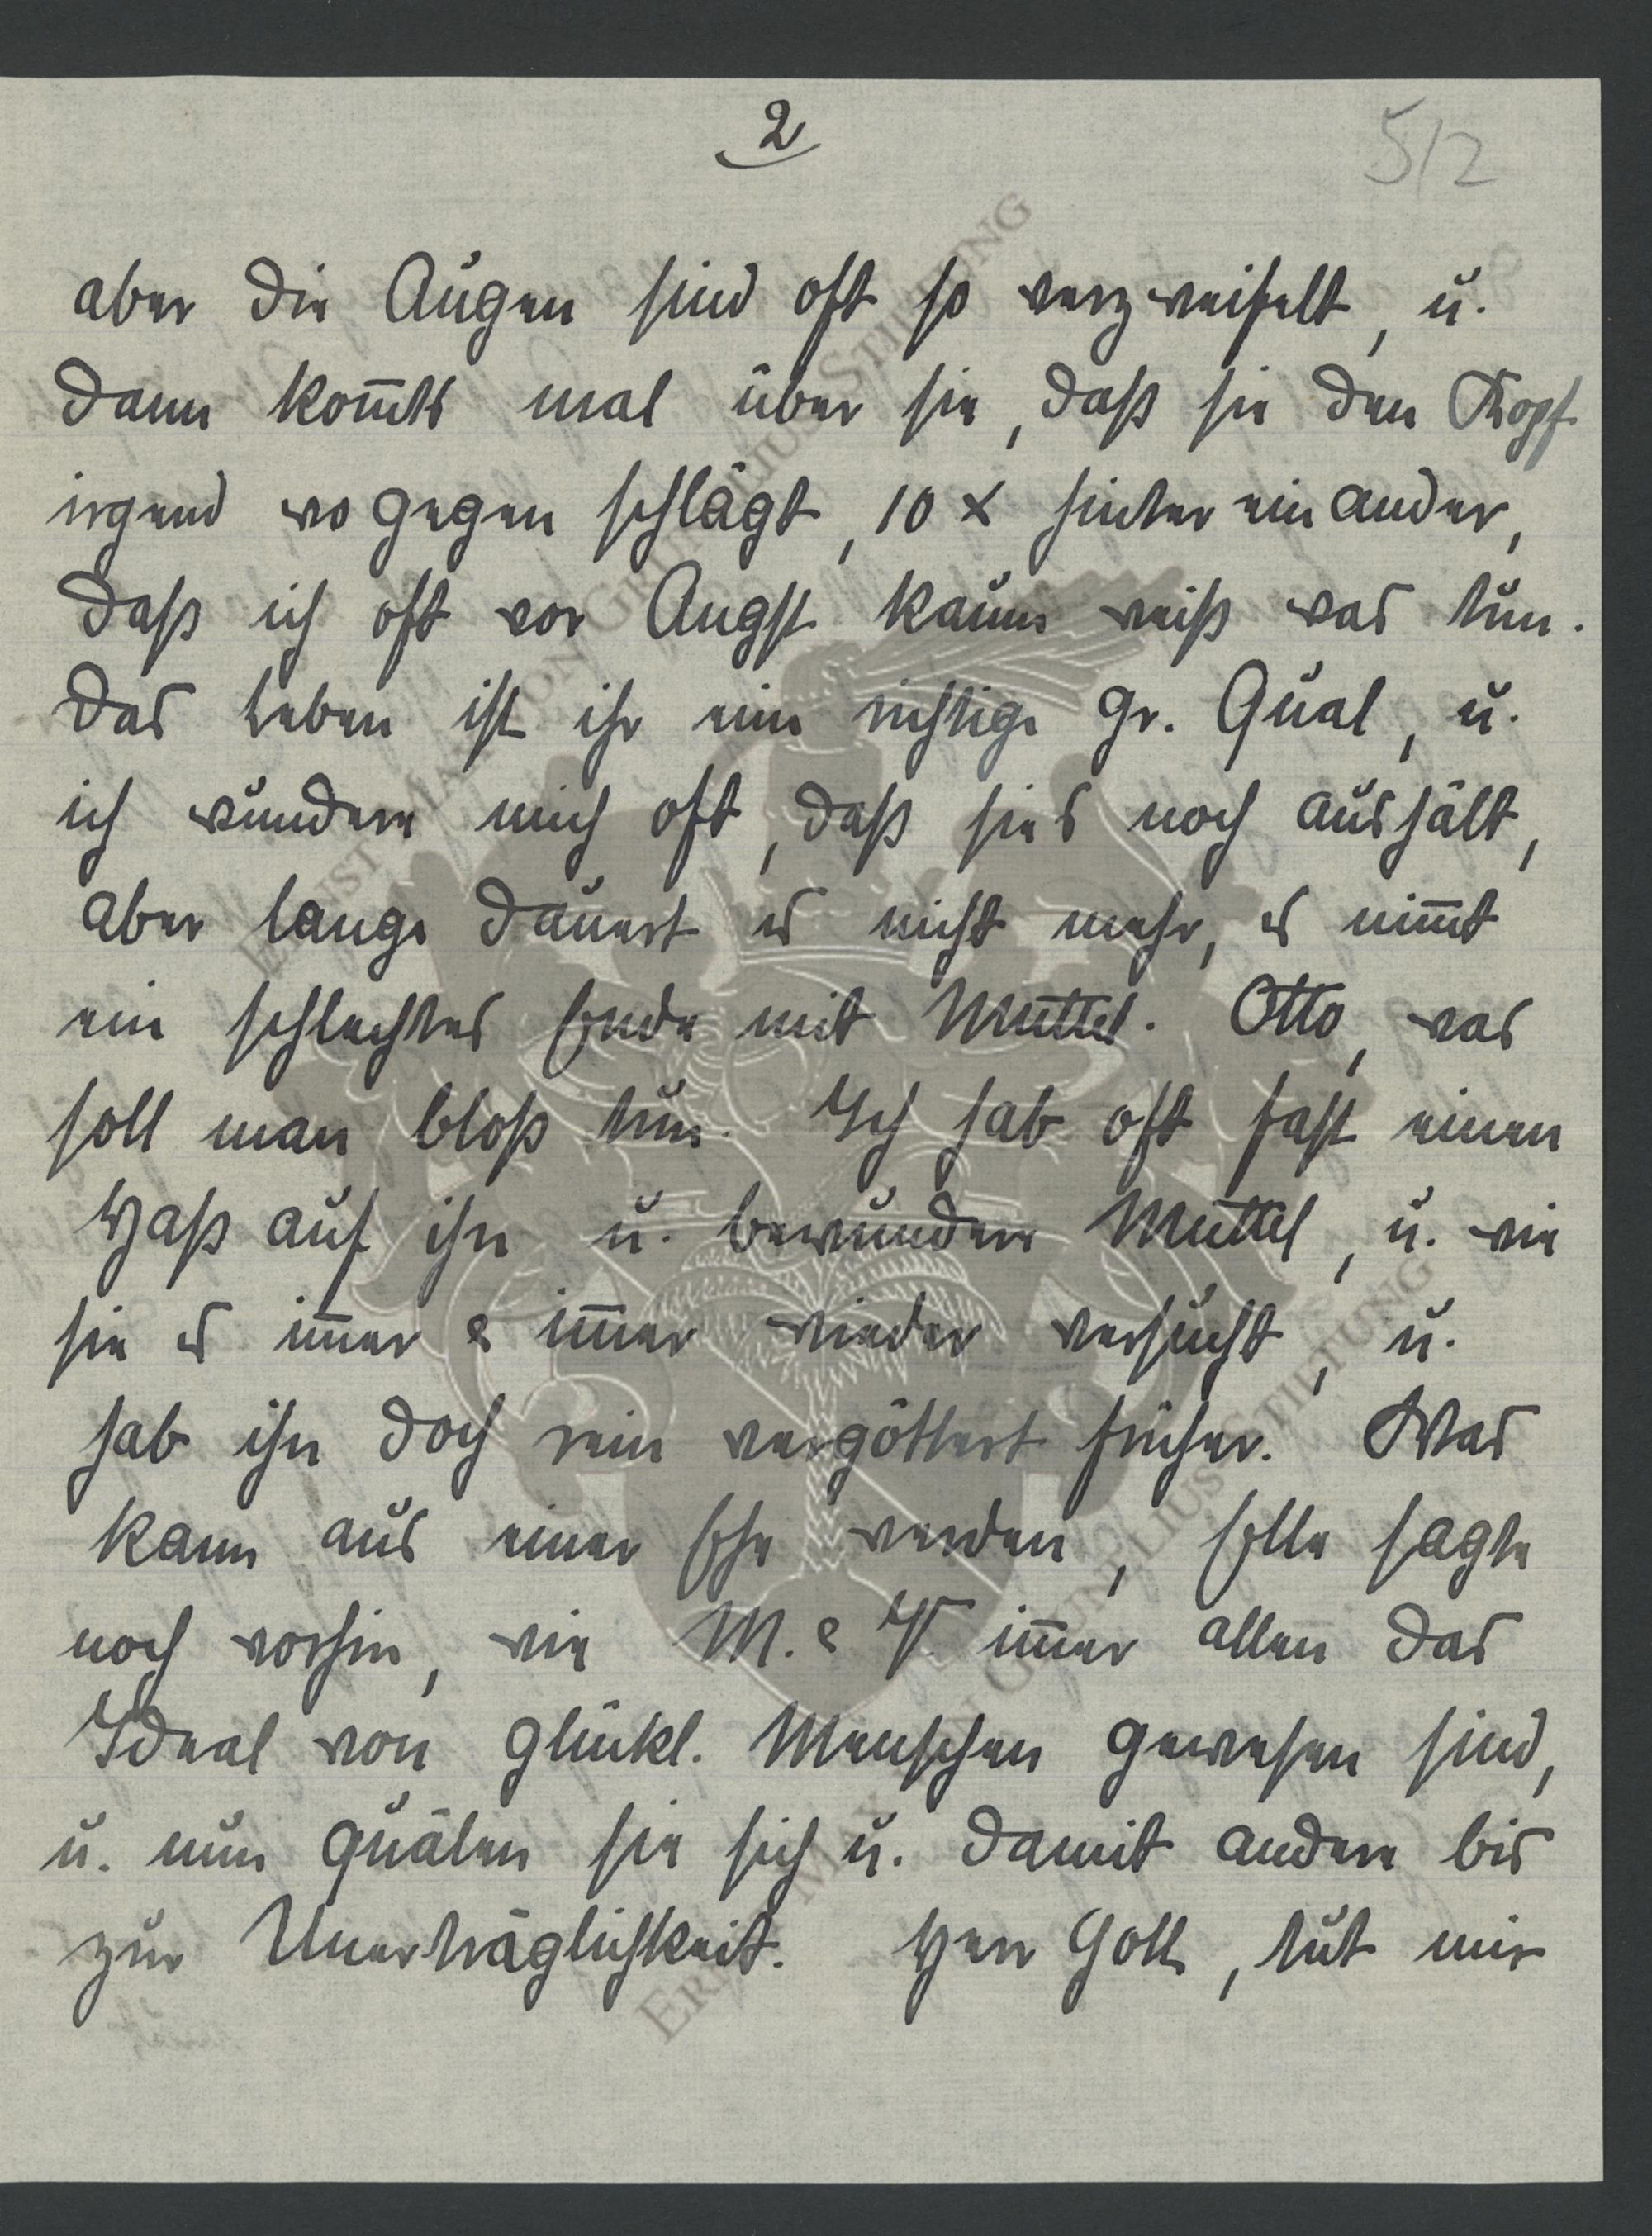 2
5/2
aber die Augen sind oft so verzweifelt, u.
dann kom̅ts mal über sie, daß sie den Kopf
irgend wo gegen schlägt, 10 x hinter einander,
daß ich oft vor Angst kaum weiß was tun.
Das Leben ist ihr eine richtige gr. Qual, u.
ich wundere mich oft, daß sies noch aushält,
aber lange dauert es nicht mehr, es nim̅t
ein schlechtes Ende mit Muttel. Otto, was
soll man bloß tun. Ich hab oft fast einen
Haß auf ihn u. bewundere Muttel, u. wie
sie es im̅er & im̅er wieder versucht, u.
hab ihn doch rein vergöttert früher. Was
kann aus einer Ehe werden, Elle sagte
noch vorhin, wie M. & V. im̅er allen das
Ideal von glückl. Menschen gewesen sind,
u. nun quälen sie sich u. damit andere bis
zur Unerträglichkeit. Herr Gott, tut mir
ERNST MAX VON GRUNELIUS STIFTUNG
ERNST MAX VON GRUNELIUS STIFTUNG